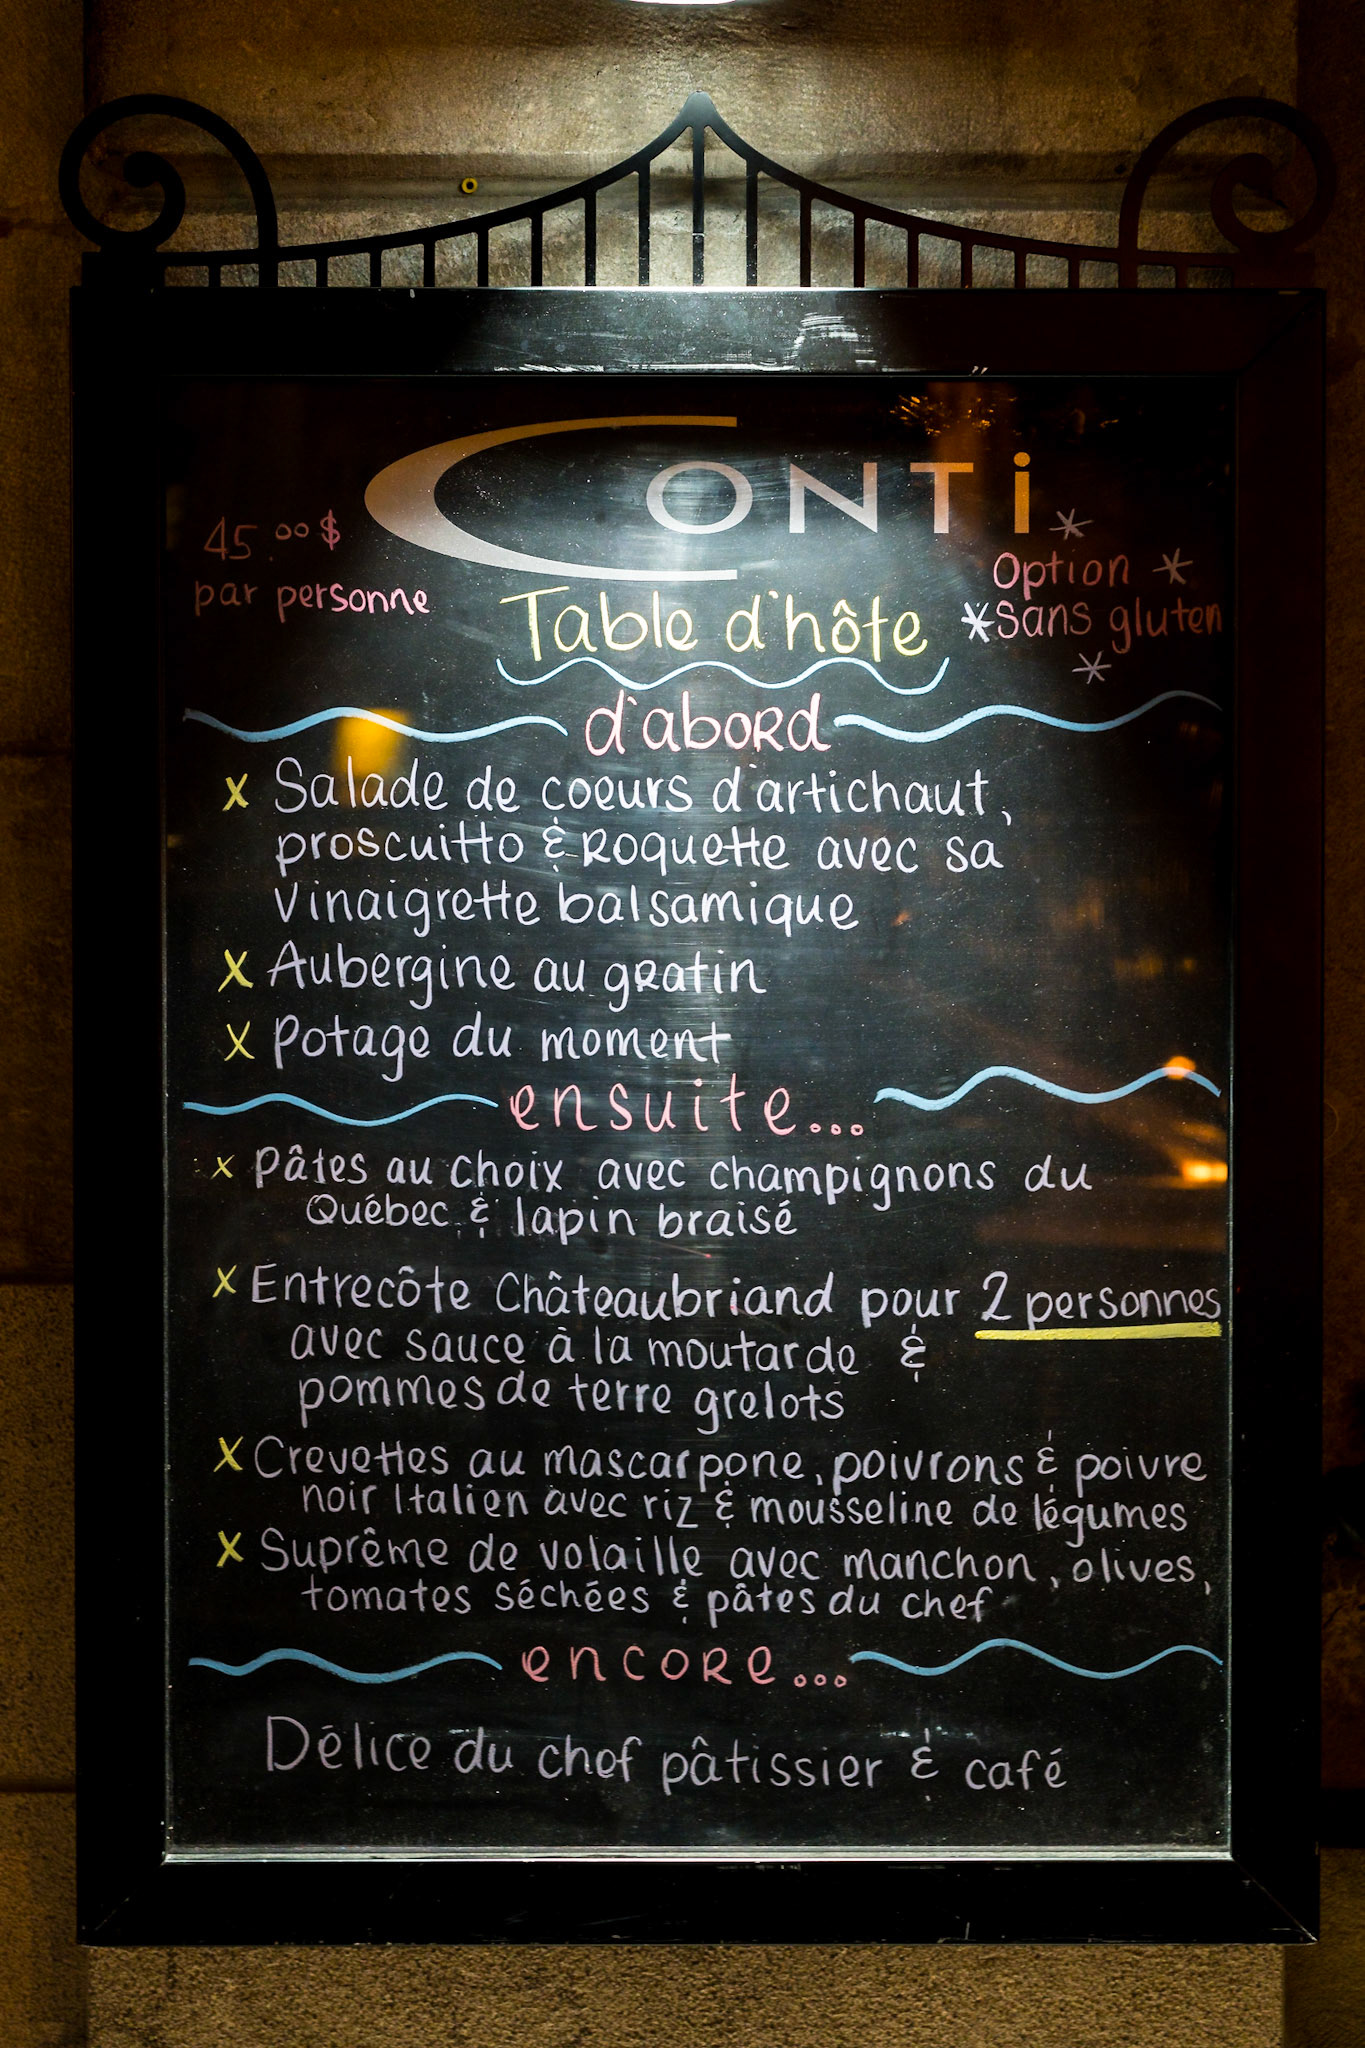 CONTi
45.⁰⁰$
par personne
* Option *
*sans gluten
*
Table d'hôte
d'aboRd
x Salade de coeurs d'artichaut,
proscuitto & Roquette avec sa
vinaigrette balsamique
x Aubergine au gRatin
x Potage du moment
ensuite...
x Pâtes au choix avec champignons du
Québec & lapin braisé
x Entrecôte Châteaubriand pour 2 personnes
avec sauce à la moutarde &
pommes de terre grelots
x Crevettes au mascarpone, poivrons & poivre
noir Italien avec riz & mousseline de légumes
x Suprême de volaille avec manchon, olives,
tomates séchées & pâtes du chef
encoRe...
Délice du chef pâtissier & café